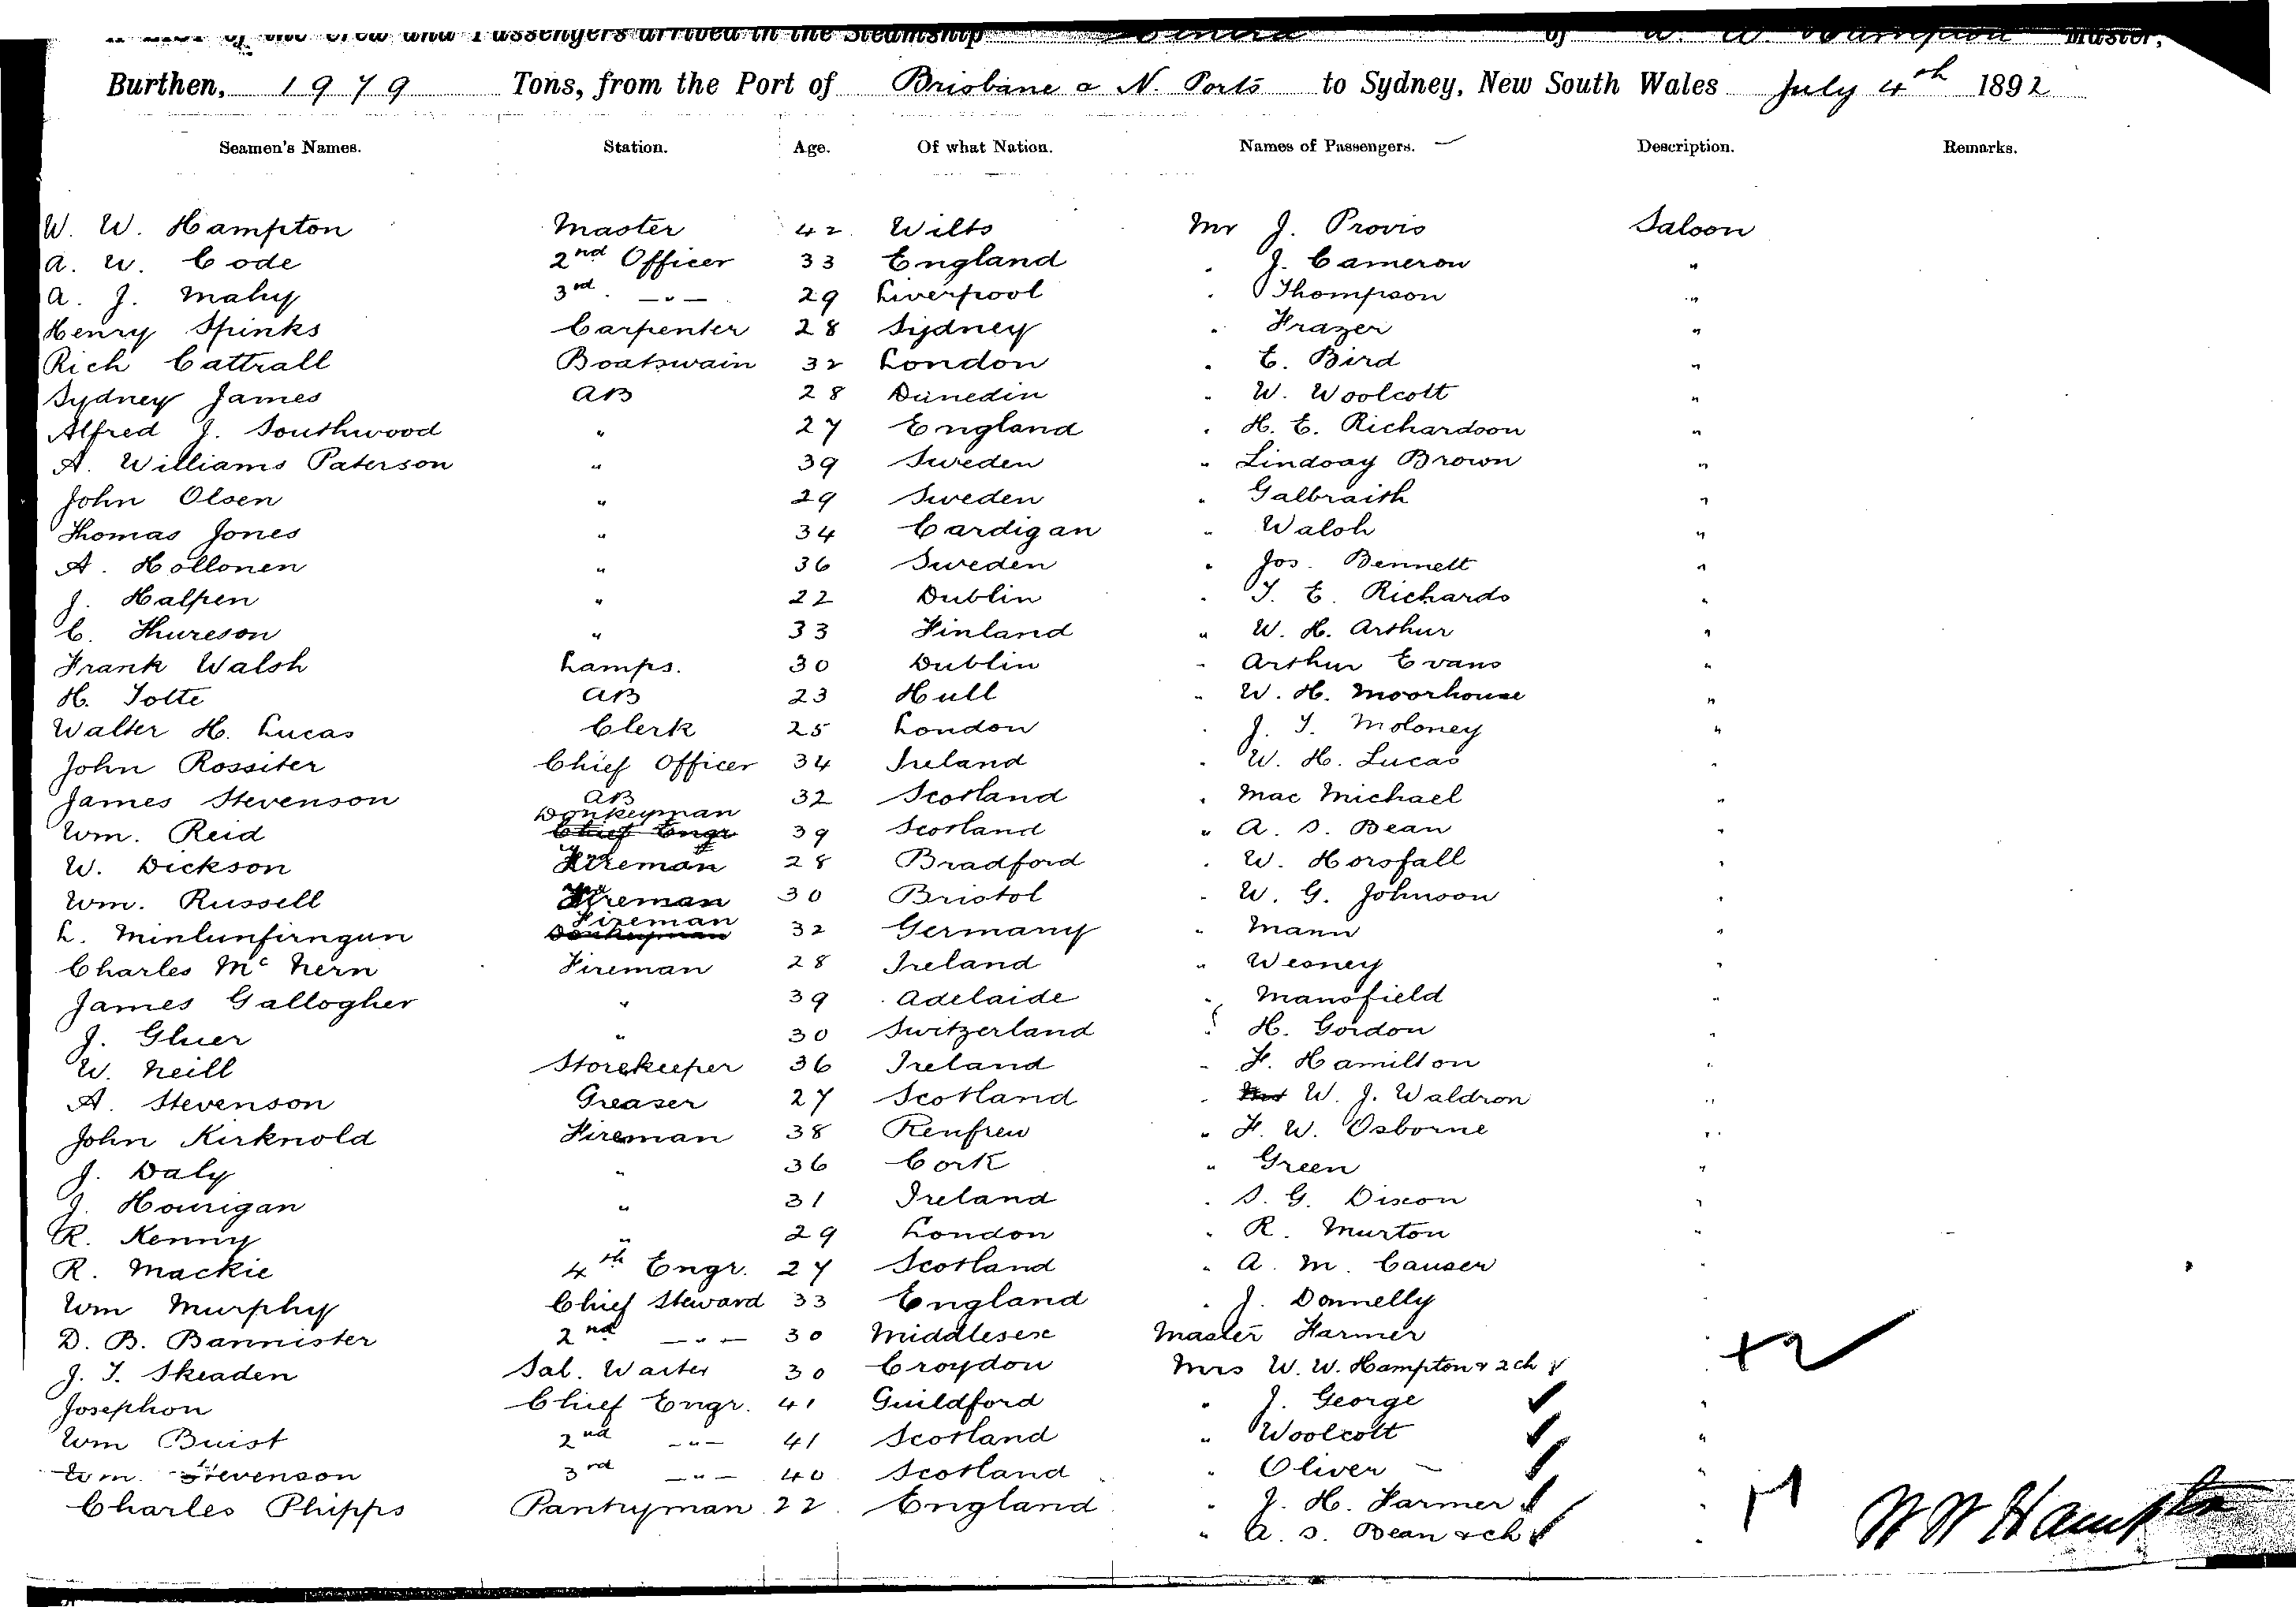 A List of the Crew and Passengers arrived in the Steamship of W. W. Hampton Master,
Burthen, 1979 Tons, from the Port of Brisbane & N. Ports to Sydney, New South Wales July 4th 1892
Seamen's Names. Station. Age. Of what Nation. Names of Passengers. Description. Remarks.
W. W. Hampton Master 42 Wilts Mr J. Provis Saloon
A. W. Code 2nd Officer 33 England " J. Cameron "
A. J. Mahy 3rd —"— 29 Liverpool " Thompson "
Henry Spinks Carpenter 28 Sydney " Frazer "
Rich Cattrall Boatswain 32 London " E. Bird "
Sydney James AB 28 Dunedin " W. Woolcott "
Alfred J. Southwood " 27 England " H. E. Richardson "
A. Williams Paterson " 39 Sweden " Lindsay Brown "
John Olsen " 29 Sweden " Galbraith "
Thomas Jones " 34 Cardigan " Walsh "
A. Hollonen " 36 Sweden " Jos. Bennett "
J. Halpen " 22 Dublin " T. E. Richards "
C. Thureson " 33 Finland " W. H. Arthur "
Frank Walsh Lamps. 30 Dublin " Arthur Evans "
H. Totte AB 23 Hull " W. H. Moorhouse "
Walter H. Lucas Clerk 25 London " J. T. Moloney "
John Rossiter Chief Officer 34 Ireland " W. H. Lucas "
James Stevenson AB 32 Scotland " Mac Michael "
Wm. Reid Donkeyman Chief Engr 39 Scotland " A. S. Bean "
W. Dickson Fireman 28 Bradford " W. Horsfall "
Wm. Russell Fireman 30 Bristol " W. G. Johnson "
L. Minlunfirngun Fireman Donkeyman 32 Germany " Mann "
Charles Mc Nern Fireman 28 Ireland " Wesney "
James Gallogher " 39 Adelaide " Mansfield "
J. Gluer " 30 Switzerland " H. Gordon "
W. Neill Storekeeper 36 Ireland " F. Hamilton "
A. Stevenson Greaser 27 Scotland " Mrs W. J. Waldron "
John Kirknold Fireman 38 Renfrew " F. W. Osborne "
J. Daly " 36 Cork " Green "
J. Hourigan " 31 Ireland " S. G. Dixon "
R. Kenny " 29 London " R. Murton "
R. Mackie 4th Engr. 27 Scotland " A. M. Causer "
Wm Murphy Chief Steward 33 England " J. Donnelly "
D. B. Bannister 2nd —"— 30 Middlesex Master Farmer " +2
J. T. Skeaden Sal. Waiter 30 Croydon Mrs W. W. Hampton & 2 ch
Josephson Chief Engr. 41 Guildford " J. George "
Wm Buist 2nd —"— 41 Scotland " Woolcott "
Wm. Stevenson 3rd —"— 40 Scotland " Oliver "
Charles Phipps Pantryman 22 England " J. H. Farmer "
" A. S. Bean & ch "
W W Hampton